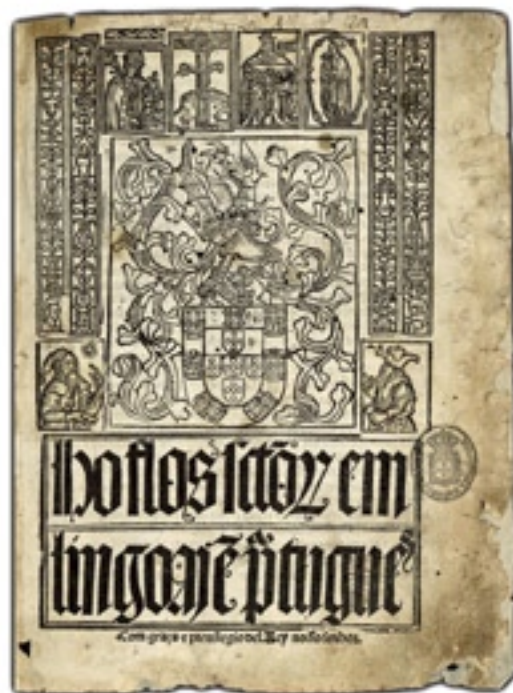 ho flos sctõꝝ em
lingoajẽ p̃tugueˢ
Com graça e preuilegio del Rey nosso senhor.